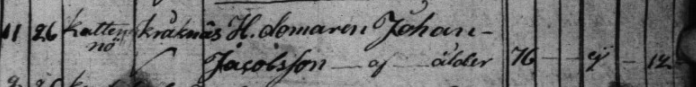 11 26 Kattenö Kråknäs H. domaren Johan
Jacobsson af ålder 76 — y — 12